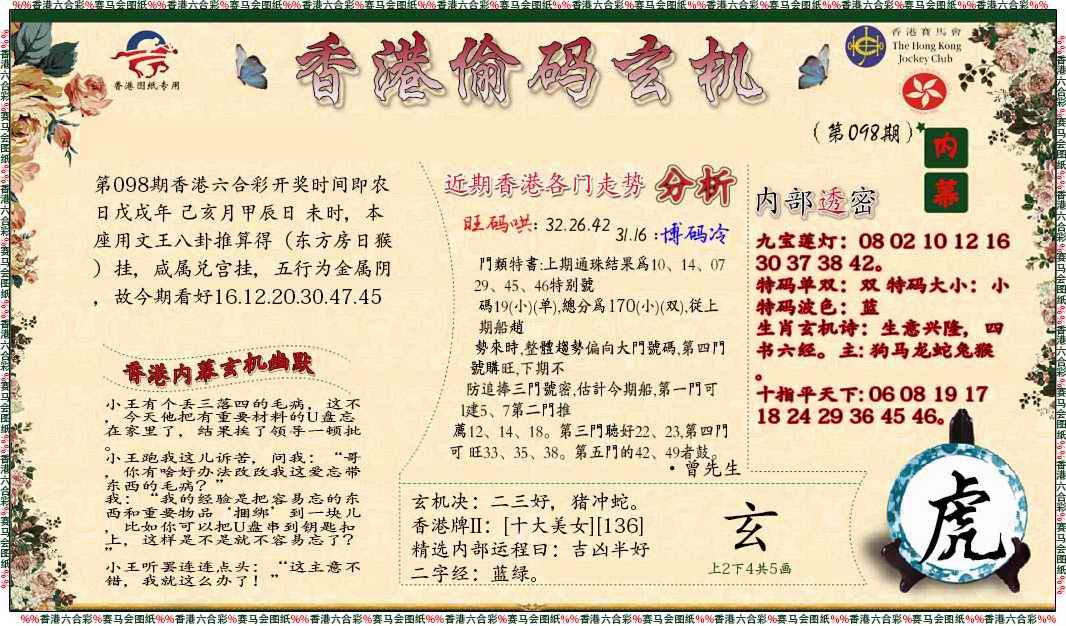 %%香港六合彩%赛马会图纸%%香港六合彩%赛马会图纸%%香港六合彩%赛马会图纸%%香港六合彩%赛马会图纸%%香港六合彩%赛马会图纸%%香港六合彩%赛马会图纸%%香港六合彩%%
香港图纸专用
香港偷码玄机
香港賽馬會
The Hong Kong
Jockey Club
(第098期)
内
幕
第098期香港六合彩开奖时间即农
日戊戌年 己亥月甲辰日 未时，本
座用文王八卦推算得（东方房日猴
）挂，咸属兑宫挂，五行为金属阴
，故今期看好16.12.20.30.47.45
香港内幕玄机幽默
小王有个丢三落四的毛病，这不
，今天他把有重要材料的U盘忘
在家里了，结果挨了领导一顿批
。
小王跑我这儿诉苦，问我：“哥
，你有啥好办法改改我这爱忘带
东西的毛病？”
我：“我的经验是把容易忘的东
西和重要物品‘捆绑’到一块儿
，比如你可以把U盘串到钥匙扣
上，这样是不是就不容易忘了？
”
小王听罢连连点头：“这主意不
错，我就这么办了！”
近期香港各门走势 分析
旺码哄: 32.26.42
31.16 :博码冷
門類特書:上期通珠結果爲10、14、07
29、45、46特别號
碼19(小)(单),總分爲170(小)(双),従上
期船趙
勢來時,整體趨勢偏向大門號碼,第四門
號購旺,下期不
防追捧三門號密,估計今期船,第一門可
1建5、7第二門推
薦12、14、18。第三門聽好22、23,第四門
可 旺33、35、38。第五門的42、49者鼓。
·曾先生
内部透密
九宝莲灯：08 02 10 12 16
30 37 38 42。
特码单双：双 特码大小：小
特码波色：蓝
生肖玄机诗：生意兴隆，四
书六经。主: 狗马龙蛇兔猴
。
十指平天下: 06 08 19 17
18 24 29 36 45 46。
玄机决：二三好，猪冲蛇。
香港牌II：[十大美女][136]
精选内部运程曰：吉凶半好
二字经：蓝绿。
玄
上2下4共5画
虎
%%香港六合彩%赛马会图纸%%香港六合彩%赛马会图纸%%香港六合彩%赛马会图纸%%香港六合彩%赛马会图纸%%香港六合彩%赛马会图纸%%香港六合彩%赛马会图纸%%香港六合彩%%